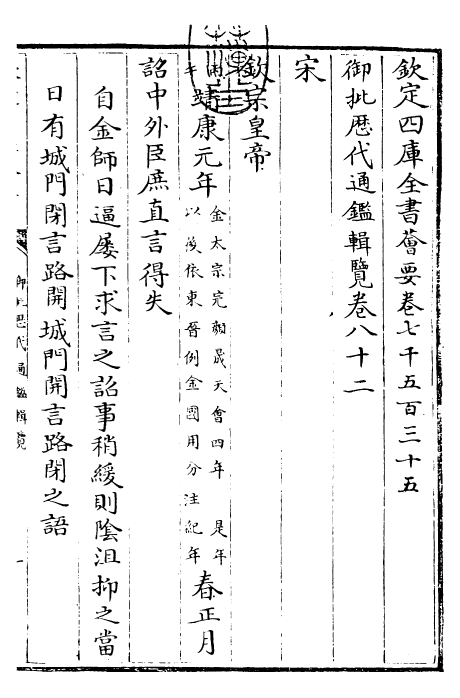 欽定四庫全書薈要卷七千五百三十五
御批歴代通鑑輯覽卷八十二
宋
欽宗皇帝
丙午靖康元年金太宗完顔晟天會四年 是年以後依東晉例金國用分注紀年春正月
詔中外臣庶直言得失
自金師日逼屢下求言之詔事稍緩則隂沮抑之當
日有城門閉言路開城門開言路閉之語
御批歴代通鑑輯覽